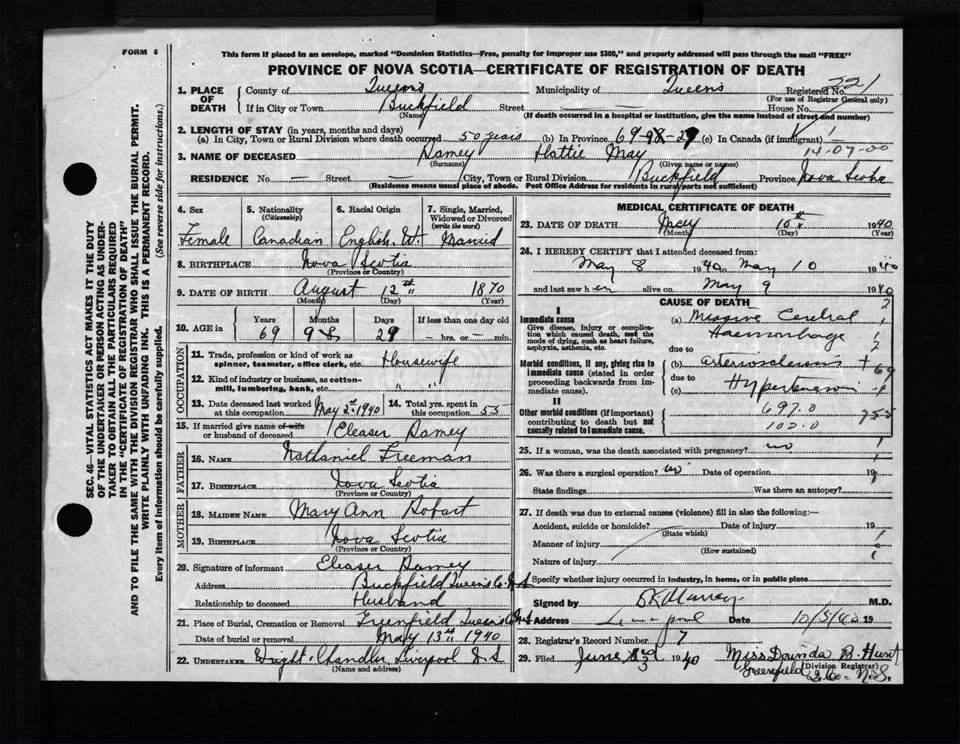 FORM 6
This form if placed in an envelope, marked "Dominion Statistics—Free, penalty for improper use $300," and properly addressed will pass through the mail "FREE"
PROVINCE OF NOVA SCOTIA—CERTIFICATE OF REGISTRATION OF DEATH
SEC. 46—VITAL STATISTICS ACT MAKES IT THE DUTY
OF THE UNDERTAKER OR PERSON ACTING AS UNDER-
TAKER TO OBTAIN ALL THE PARTICULARS REQUIRED
IN THE "CERTIFICATE OF REGISTRATION OF DEATH"
AND TO FILE THE SAME WITH THE DIVISION REGISTRAR WHO SHALL ISSUE THE BURIAL PERMIT.
WRITE PLAINLY WITH UNFADING INK. THIS IS A PERMANENT RECORD.
Every item of information should be carefully supplied. (See reverse side for instructions.)
1. PLACE OF DEATH
County of Queens Municipality of Queens Registered No. 221
(For use of Registrar General only)
If in City or Town Buckfield Street — House No.
(Name) (If death occurred in a hospital or institution, give the name instead of street and number)
2. LENGTH OF STAY (in years, months and days)
(a) In City, Town or Rural Division where death occurred 50 years (b) In Province 69-98-29 (c) In Canada (if immigrant)
14-07-00
3. NAME OF DECEASED Ramey Hattie May
(Surname) (Given name or names)
RESIDENCE No. — Street — City, Town or Rural Division Buckfield Province Nova Scotia
(Residence means usual place of abode. Post Office Address for residents in rural parts not sufficient)
4. Sex
Female
5. Nationality
(Citizenship)
Canadian
6. Racial Origin
English W.
7. Single, Married,
Widowed or Divorced
(write the word)
Married
8. BIRTHPLACE Nova Scotia
(Province or Country)
9. DATE OF BIRTH August 12th 1870
(Month) (Day) (Year)
10. AGE in
Years Months Days If less than one day old
69 9 8 29 — hrs. or — min.
OCCUPATION
11. Trade, profession or kind of work as
spinner, teamster, office clerk, etc. Housewife
12. Kind of industry or business, as cotton-
mill, lumbering, bank, etc. " "
13. Date deceased last worked
at this occupation May 2nd 1940
14. Total yrs. spent in
this occupation 55
15. If married give name of wife
or husband of deceased Eleaser Ramey
FATHER
16. NAME Nathaniel Freeman
17. BIRTHPLACE Nova Scotia
(Province or Country)
MOTHER
18. MAIDEN NAME Mary Ann Robart
19. BIRTHPLACE Nova Scotia
(Province or Country)
20. Signature of informant Eleaser Ramey
Address Buckfield Queens Co. N.S.
Relationship to deceased Husband
21. Place of Burial, Cremation or Removal Greenfield Queens Co N.S
Date of burial or removal May 13th 1940
22. UNDERTAKER Wright & Chandler Liverpool N.S
(Name and address)
MEDICAL CERTIFICATE OF DEATH
23. DATE OF DEATH May 10th 1940
(Month) (Day) (Year)
24. I HEREBY CERTIFY that I attended deceased from:
May 8 1940 to May 10 1940
and last saw her alive on May 9 1940
CAUSE OF DEATH
I
Immediate cause
Give disease, injury or complica-
tion which caused death, not the
mode of dying, such as heart failure,
asphyxia, asthenia, etc.
(a) Massive Cerebral
Haemorrhage
due to
Morbid conditions, if any, giving rise to
immediate cause (stated in order
proceeding backwards from im-
mediate cause).
(b) arteriosclerosis
due to
(c) Hypertension
II
Other morbid conditions (if important)
contributing to death but not
causally related to immediate cause.
697.0
102.0
25. If a woman, was the death associated with pregnancy? no
26. Was there a surgical operation? no Date of operation 19
State findings Was there an autopsy?
27. If death was due to external causes (violence) fill in also the following:—
Accident, suicide or homicide? Date of injury 19
(State which)
Manner of injury
(How sustained)
Nature of injury
Specify whether injury occurred in industry, in home, or in public place
Signed by Murray M.D.
Address Liverpool Date 10/5/40 19
28. Registrar's Record Number 7
29. Filed June 3rd 1940 Miss Dorinda B. Hunt
(Division Registrar)
Greenfield Q. Co. N.S.